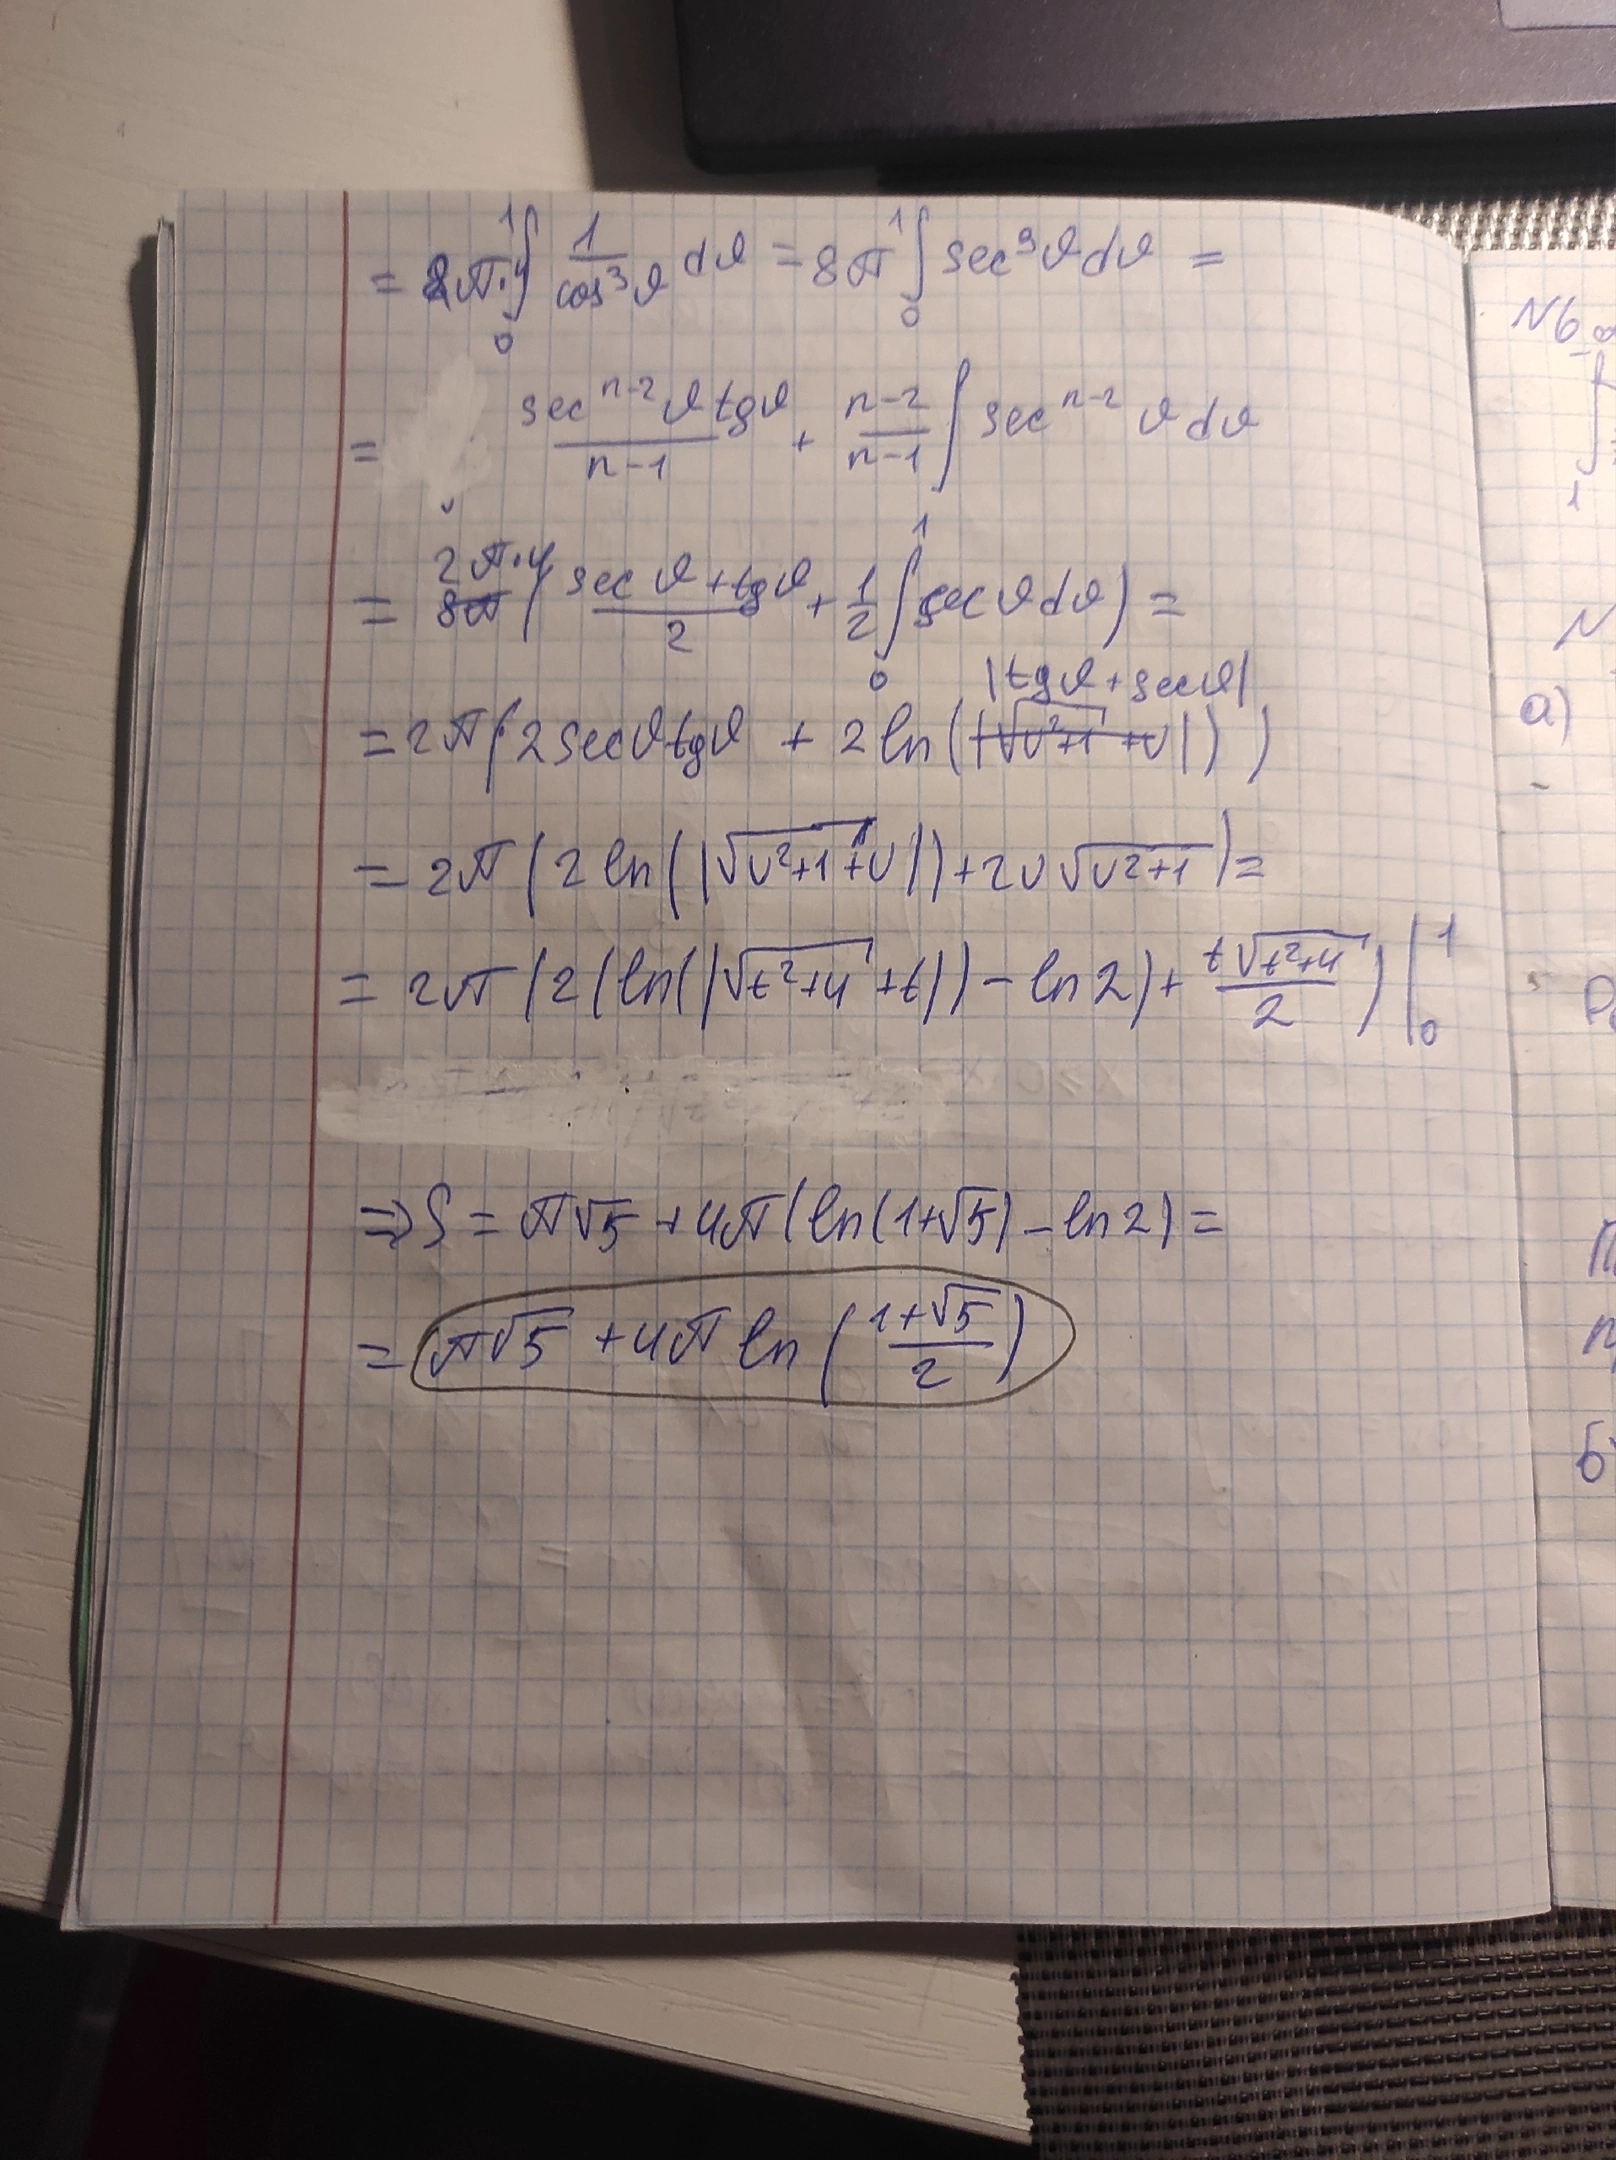 = 2π·4 ∫₀¹ 1/cos³ϑ dϑ = 8π ∫₀¹ sec³ϑdϑ =
= secⁿ⁻²ϑ tgϑ/(n-1) + (n-2)/(n-1) ∫ secⁿ⁻² ϑ dϑ
= 2π·4 ( (secϑ + tgϑ)/2 + 1/2 ∫₀¹ secϑdϑ) =
= 2π(2secϑtgϑ + 2ln(|tgϑ + secϑ|))
= 2π(2ln(|√(v²+1) + v|) + 2v√(v²+1)) =
= 2π(2(ln(|√(t²+4) + t|) - ln2) + t√(t²+4)/2) |₀¹
⇒ S = π√5 + 4π(ln(1+√5) - ln2) =
= π√5 + 4π ln((1+√5)/2)
N6
1
N
а)
-